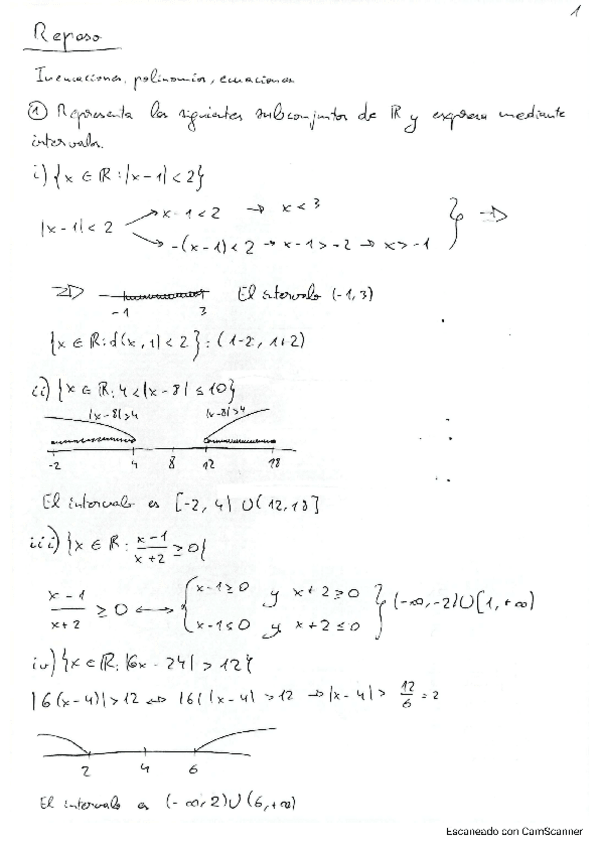 1
Repaso
Inecuaciones, polinomios, ecuaciones
① Representa los siguientes subconjuntos de ℝ y expresa mediante
intervalos.
i) {x ∈ ℝ : |x-1| < 2}
|x-1| < 2 → x-1 < 2 → x < 3
→ -(x-1) < 2 → x-1 > -2 → x > -1 } ⇒
⇒ -1 3 El intervalo (-1, 3)
{x ∈ ℝ : d(x, 1) < 2} = (1-2, 1+2)
ii) {x ∈ ℝ : 4 < |x-8| ≤ 10}
|x-8|>4 |x-8|>4
-2 4 8 12 18
El intervalo es [-2, 4) ∪ (12, 18]
iii) {x ∈ ℝ : (x-1)/(x+2) ≥ 0}
(x-1)/(x+2) ≥ 0 ⟷ { x-1 ≥ 0 y x+2 ≥ 0
x-1 ≤ 0 y x+2 ≤ 0 } (-∞, -2) ∪ [1, +∞)
iv) {x ∈ ℝ : |6x - 24| > 12}
|6(x-4)| > 12 ↔ |6||x-4| > 12 → |x-4| > 12/6 = 2
2 4 6
El intervalo es (-∞, 2) ∪ (6, +∞)
Escaneado con CamScanner